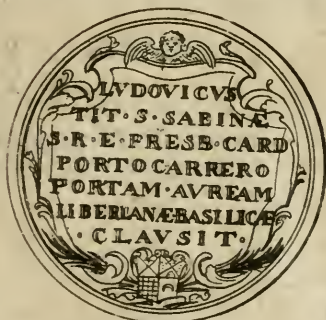 LVDOVICVS
TIT·S·SABINÆ
S·R·E·PRESB·CARD
PORTOCARRERO
PORTAM·AVREAM
LIBERIANÆ·BASILICÆ
·CLAVSIT·